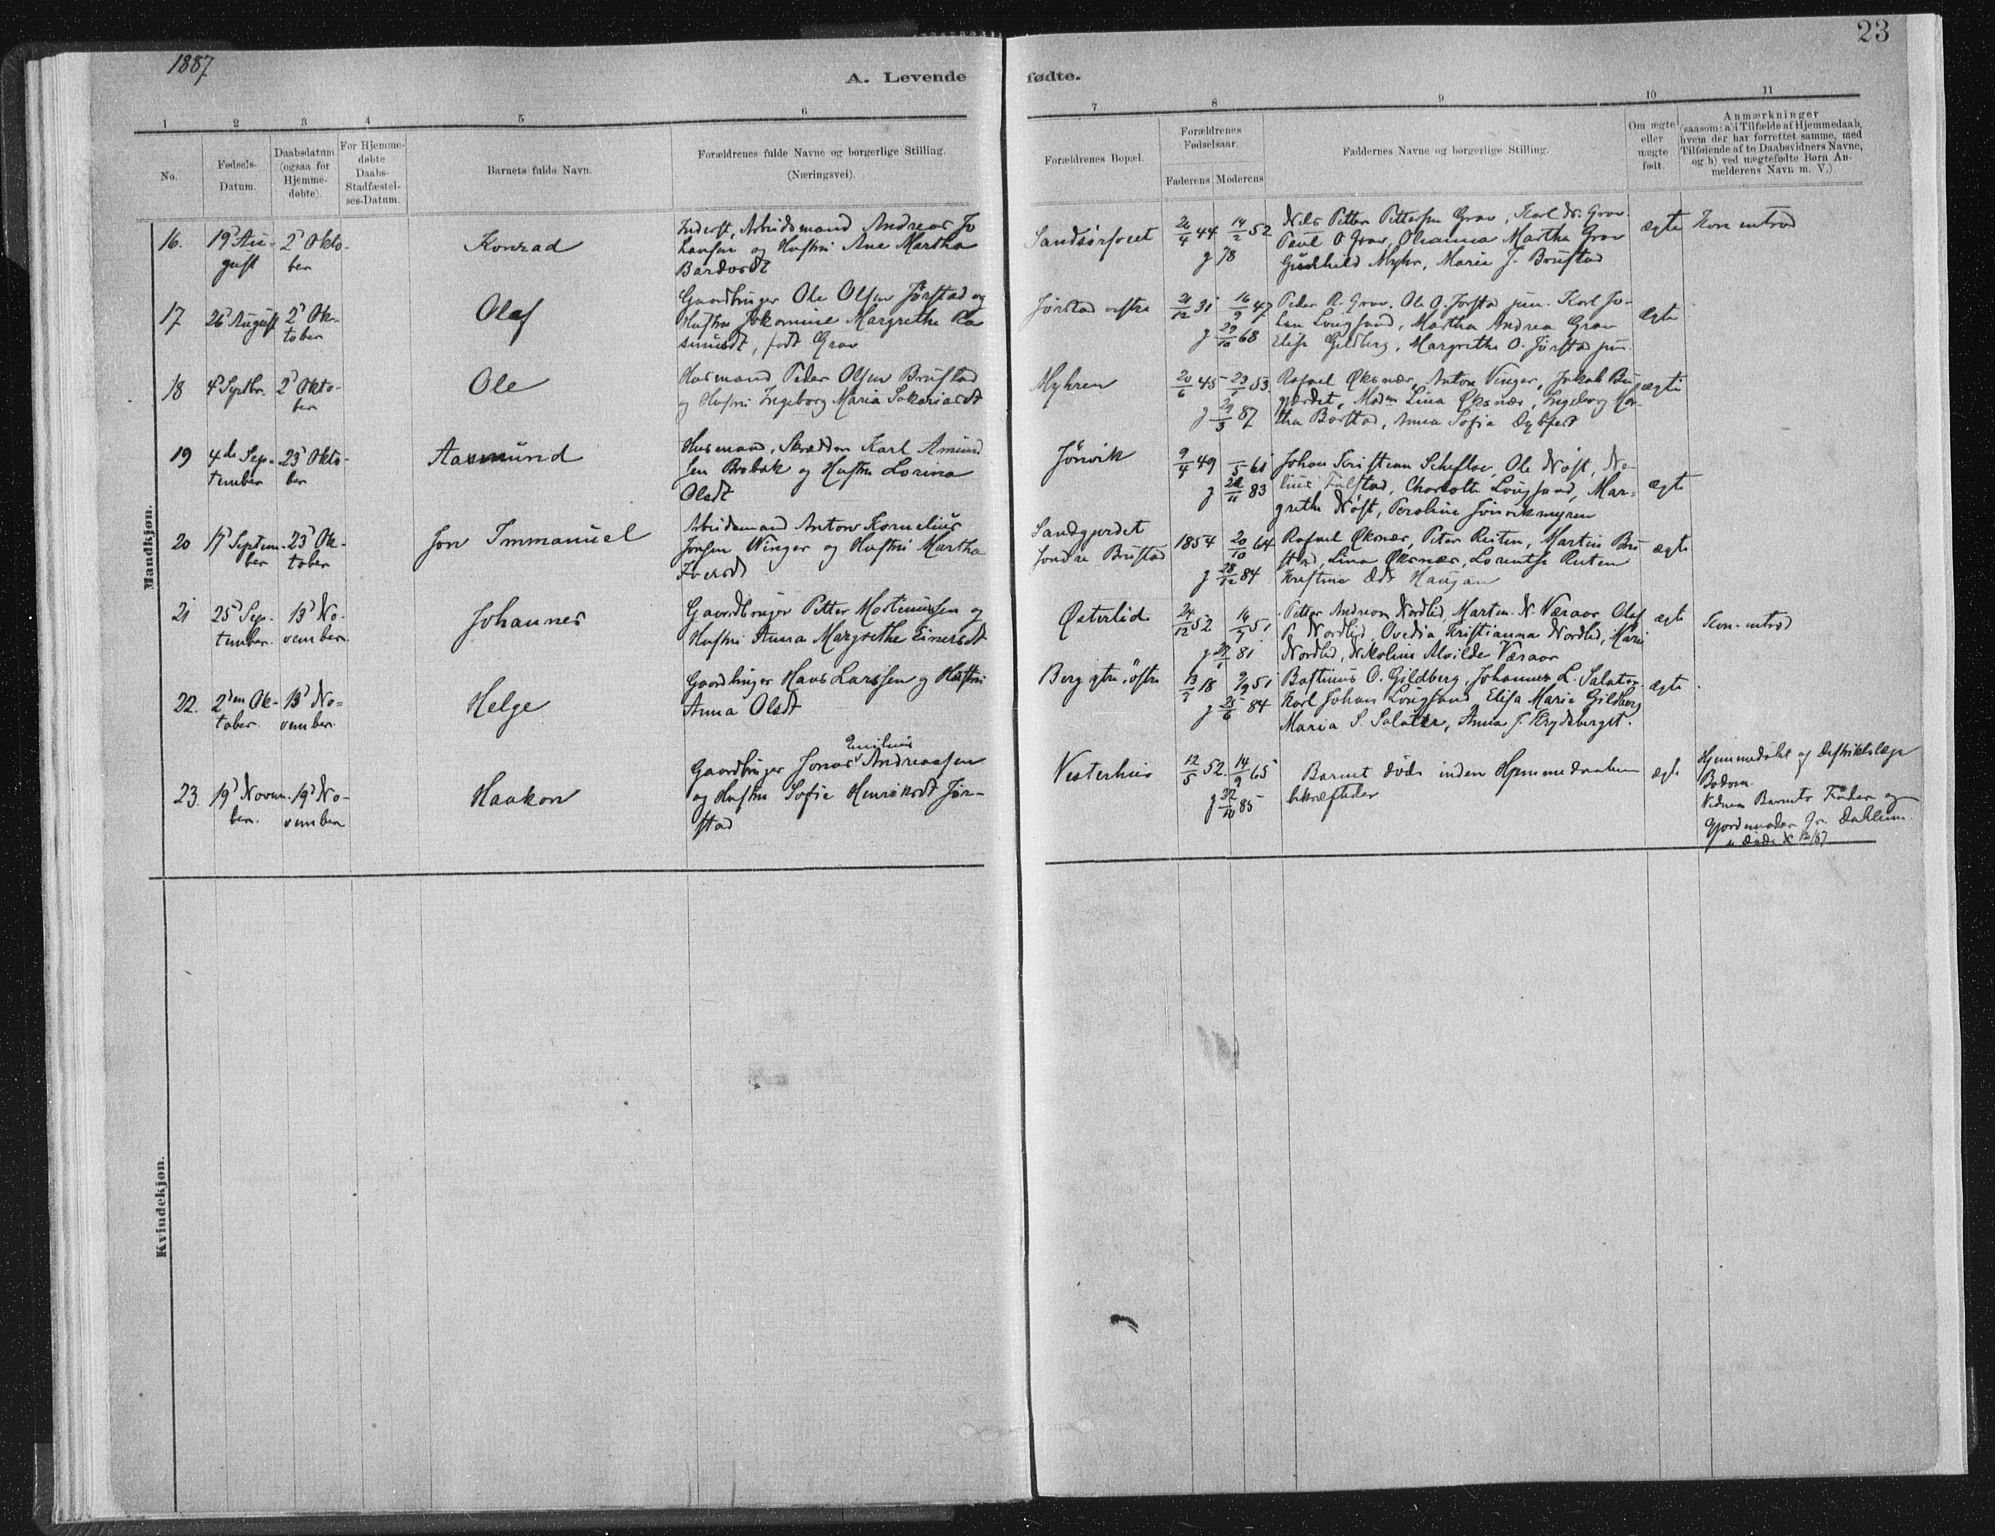 1887
A. Levende
fødte.
23
1 2 3 4 5 6 7 8 9 10 11
No.
Fødsels-
Datum.
Daabsdatum
(ogsaa for
Hjemme-
døbte).
For Hjemme-
døbte
Daabs-
Stadfæstel-
ses-Datum.
Barnets fulde Navn.
Forældrenes fulde Navne og borgerlige Stilling.
(Næringsvei).
Forældrenes Bopæl.
Forældrenes
Fødselsaar.
Faderens Moderens
Faddernes Navne og borgerlige Stilling.
Om ægte
eller
uægte
født.
Anmærkninger
(saasom: a) i Tilfælde af Hjemmedaab,
hvem der har forrettet samme, med
Tilføiende af to Daabsvidners Navne,
og b) ved uægtefødte Børn An-
melderens Navn m. V.)
Mandkjøn.
16. 19' Au-
gust
2' Okto-
ber
Konrad
Inderst, Arbeidsmand Andreas Jo
hansen og Hustru Ane Martha
Bardosdt
Sandsørfocet
20/4 44 14/2 52
g 78
Nils Petter Pettersen Grav, Karl N. Grav
Paul O Grav, Johanna Martha Grav
Gunhild Myhr, Marie J. Brustad
ægte
Kon. introd
17 26' August 2' Ok-
tober
Olaf
Gaardbruger Ole Olsen Jørstad og
Hustru Jokomine Margrethe Ra
smusdt, født Grav
Jørstad østre
21/12 31 16/9 47
g 29/10 68
Peder R. Grav, Ole O. Jørstad jun. Karl Jo-
han Lougsund, Martha Andrea Grav
Elise Gildberg, Margrethe O. Jørstad jun.
ægte
18 4' Septbr. 2' Okto-
ber
Ole
Husmand Peder Olsen Brustad
og Hustru Ingeborg Maria Sakariasdt
Myhren
20/6 45 23/1 53
g 29/3 87
Rafael Øksnær, Anton Vinger, Jakob Bu
gjerdet, Madm Lina Øksnær, Ingeborg Mar-
tha Borstad, Anna Sofie Dybfest
ægte
19 4de Sep-
tember
23' Okto-
ber
Aasmund
Husmand, Skrædder Karl Amund
sen Brobak og Hustru Lorina
Olsdt
Jønvik
9/4 49 /5 61
g 22/11 83
Johan Kristian Scheflo, Ole Nøst, Ne-
lius Fulstad, Charlotte Lougsund, Mar-
grethe Nøst, Peroline Jønvikmyren
ægte
20 17' Septem-
ber
23' Ok-
tober
Jon Immanuel
Arbeidsmand Anton Kornelius
Jonsen Winger og Hustru Martha
Iversdt
Sandgjerdet
søndre Brustad
1854 20/10 64
g 28/12 84
Rafael Øksnær, Peter Reiten, Martin Bru
stad, Lina Øksnær, Lorentse Reiten
Kristine Eds Haugan
ægte
21 25' Sep-
tember.
13' No-
vember.
Johannes
Gaardbruger Petter Martinussen og
Hustru Anna Margrethe Einersdt
Østerlid
24/12 52 16/7 51
g 27/1 81
Petter Andreas Nordlid, Martin N. Væraas, Olef
P. Nordlid, Ovedia Kristianna Nordlid, Marie
Nordlid, Nikoline Alvilde Væraas
ægte
Kon. introd
22. 2den Ok-
tober.
13' No-
vember.
Helge
Gaardbruger Hans Larssen og Hustru
Anna Olsdt
Berg ytre, østre
13/5 18 9/9 51
g 25/6 84
Bastinus O. Gildberg, Johannes L. Salater
Karl Johan Lougsund, Elisa Maria Gildberg
Maria S. Salater, Anna J. Krydsberget.
ægte
23. 19' Novem-
ber.
19' No-
vember
Haakon
Gaardbruger Jonas Emilius Andreassen
og Hustru Sofie Henriksdt Jør-
stad
Vesterhus
12/5 52. 14/9 65
g 22/10 85
Barnet døde inden Hjemmedaaben
bekræftedes
ægte
Hjemmedøbt af Distriktslæge
Bodom.
Vidnes Barnets Fader og
Gjordmoder Fr. Dahlum.
Kvindekjøn.